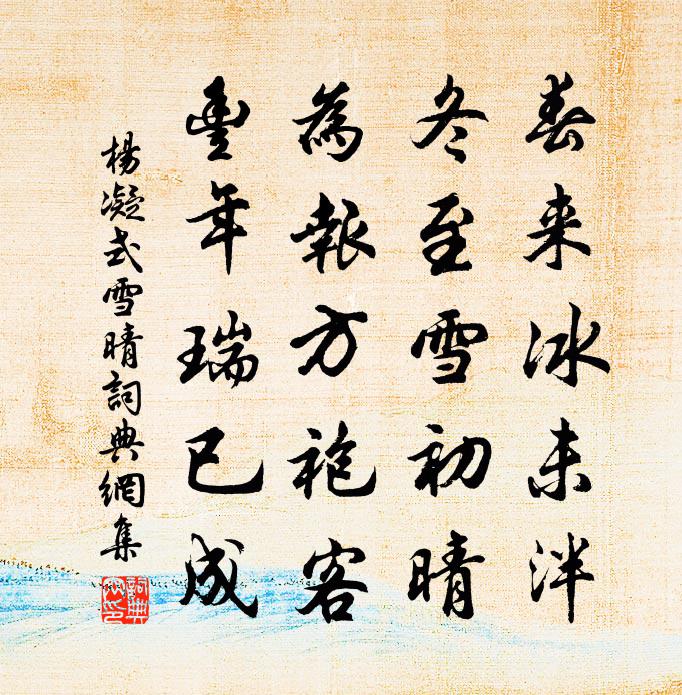 春来冰未泮
冬至雪初晴
為報方袍客
豊年瑞已成
楊凝式雪晴詞典網集